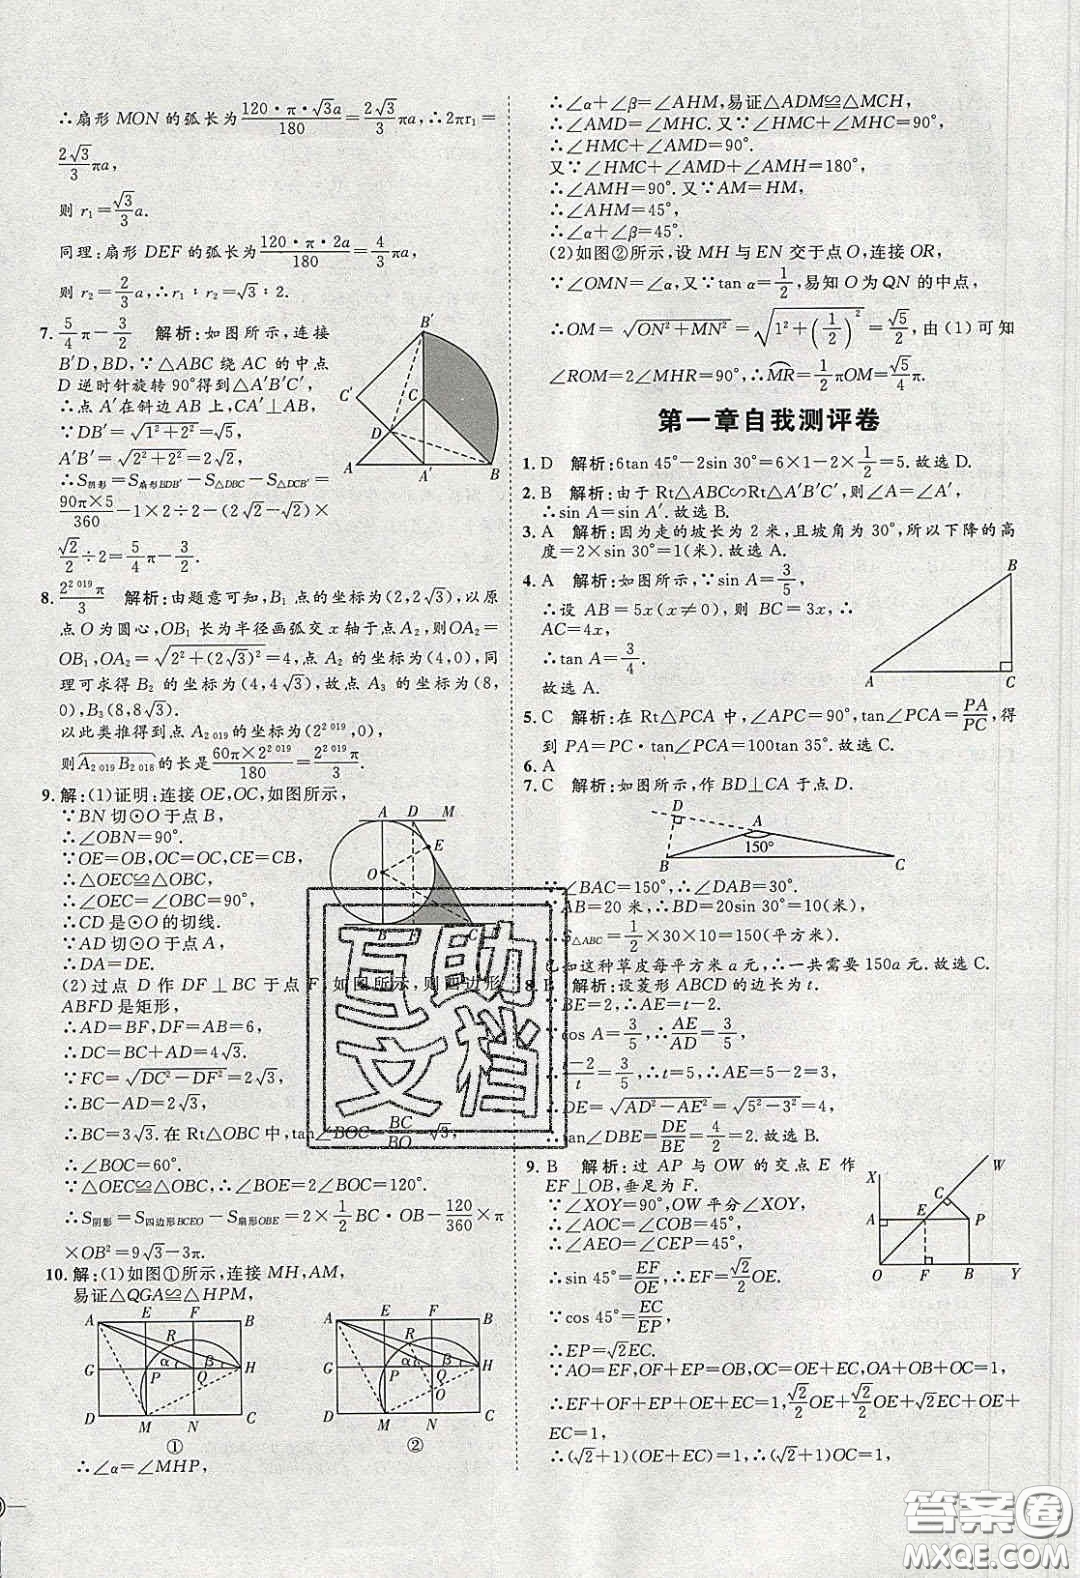 ∴扇形 MON 的弧长为120·π·√3a/180=2√3/3πa,∴2πr₁=
2√3/3πa,
则 r₁=√3/3a.
同理:扇形 DEF 的弧长为120·π·2a/180=4/3πa,
则 r₂=2/3a,∴r₁∶r₂=√3∶2.
7. 5/4π−3/2 解析:如图所示,连接
B′D,BD,∵△ABC 绕 AC 的中点
D 逆时针旋转 90°得到△A′B′C′,
∴点 A′在斜边 AB 上,CA′⊥AB.
∵DB′=√(1²+2²)=√5,
A′B′=√(2²+2²)=2√2,
∴S阴影=S扇形BDB′−S△DBC−S△DCB′=
90π×5/360−1×2÷2−(2√2−√2)×
√2÷2=5/4π−3/2.
B′
C′
C
D
A
A′
B
8. 2^2 019π/3 解析:由题意可知,B₁ 点的坐标为(2,2√3),以原
点 O 为圆心,OB₁ 长为半径画弧交 x 轴于点 A₂,则OA₂=
OB₁,OA₂=√(2²+(2√3)²)=4,点 A₂ 的坐标为(4,0),同
理可求得 B₂ 的坐标为(4,4√3),故点 A₃ 的坐标为(8,
0),B₃(8,8√3).
以此类推得到点 A₂ ₀₁₉的坐标为(2^2 019,0),
则A₂ ₀₁₉B₂ ₀₁₈的长是60π×2^2 019/180=2^2 019π/3.
9. 解:(1)证明:连接 OE,OC,如图所示,
∵BN 切⊙O 于点 B,
∴∠OBN=90°.
∵OE=OB,OC=OC,CE=CB,
∴△OEC≌△OBC,
∴∠OEC=∠OBC=90°,
∴CD 是⊙O 的切线.
∵AD 切⊙O 于点 A,
∴DA=DE.
A D M
E
O
B F C
(2)过点 D 作 DF⊥BC 于点 F,如图所示,则四边形
ABFD 是矩形,
∴AD=BF,DF=AB=6,
∴DC=BC+AD=4√3.
∵FC=√(DC²−DF²)=2√3,
∴BC−AD=2√3,
∴BC=3√3.在 Rt△OBC 中,tan∠BOC=BC/BO=√3,
∴∠BOC=60°.
∵△OEC≌△OBC,∴∠BOE=2∠BOC=120°.
∴S阴影=S四边形BCEO−S扇形OBE=2×1/2BC·OB−120/360×π
×OB²=9√3−3π.
10. 解:(1)如图①所示,连接 MH,AM,
易证△QGA≌△HPM,
A E F B
R
G P α Q β H
D M N C
①
A E F B
R
G P α Q β H
O
D M N C
②
∴∠α=∠MHP,
∴∠α+∠β=∠AHM,易证△ADM≌△MCH,
∴∠AMD=∠MHC.又∵∠HMC+∠MHC=90°,
∴∠HMC+∠AMD=90°.
又∵∠HMC+∠AMD+∠AMH=180°,
∴∠AMH=90°.又∵AM=HM,
∴∠AHM=45°,
∴∠α+∠β=45°.
(2)如图②所示,设 MH 与 EN 交于点 O,连接 OR,
∵∠OMN=∠α,又∵tan α=1/2,易知 O 为 QN 的中点,
∴OM=√(ON²+MN²)=√(1²+(1/2)²)=√5/2,由(1)可知
∠ROM=2∠MHR=90°,∴MR=1/2πOM=√5/4π.
第一章自我测评卷
1. D 解析:6tan 45°−2sin 30°=6×1−2×1/2=5.故选 D.
2. B 解析:由于 Rt△ABC∽Rt△A′B′C′,则∠A=∠A′,
∴sin A=sin A′.故选 B.
3. A 解析:因为走的坡长为 2 米,且坡角为 30°,所以下降的高
度=2×sin 30°=1(米).故选 A.
4. A 解析:如图所示,∵sin A=3/5,
∴设 AB=5x(x≠0),则 BC=3x,∴
AC=4x,
∴tan A=3/4.
故选 A.
B
A
C
5. C 解析:在 Rt△PCA 中,∠APC=90°,tan∠PCA=PA/PC,得
到 PA=PC·tan∠PCA=100tan 35°.故选 C.
6. A
7. C 解析:如图所示,作 BD⊥CA 于点 D.
D
A
150°
B
C
∵∠BAC=150°,∴∠DAB=30°.
∵AB=20 米,∴BD=20sin 30°=10(米),
∴S△ABC=1/2×30×10=150(平方米).
已知这种草皮每平方米 a 元,∴一共需要 150a 元.故选 C.
8. B 解析:设菱形 ABCD 的边长为 t.
∵BE=2,∴AE=t−2.
∵cos A=3/5,∴AE/AD=3/5,
∴t−2/t=3/5,∴t=5,∴AE=5−2=3,
∴DE=√(AD²−AE²)=√(5²−3²)=4,
∴tan∠DBE=DE/BE=4/2=2.故选 B.
9. B 解析:过 AP 与 OW 的交点 E 作
EF⊥OB,垂足为 F.
∵∠XOY=90°,OW 平分∠XOY,
∴∠AOC=∠COB=45°,
∴∠AEO=∠CEP=45°,
∴sin 45°=EF/OE,∴EF=√2/2OE.
∵cos 45°=EC/EP,
∴EP=√2EC.
X W
C
A E P
O F B Y
∵AO=EF,OF+EP=OB,OC=OE+EC,OA+OB+OC=1,
∴EF+OF+EP+OE+EC=1,∴√2/2OE+√2/2OE+√2EC+OE+
EC=1,∴(√2+1)(OE+EC)=1,∴(√2+1)OC=1,
互助
文档
答案圈
MXQE.COM